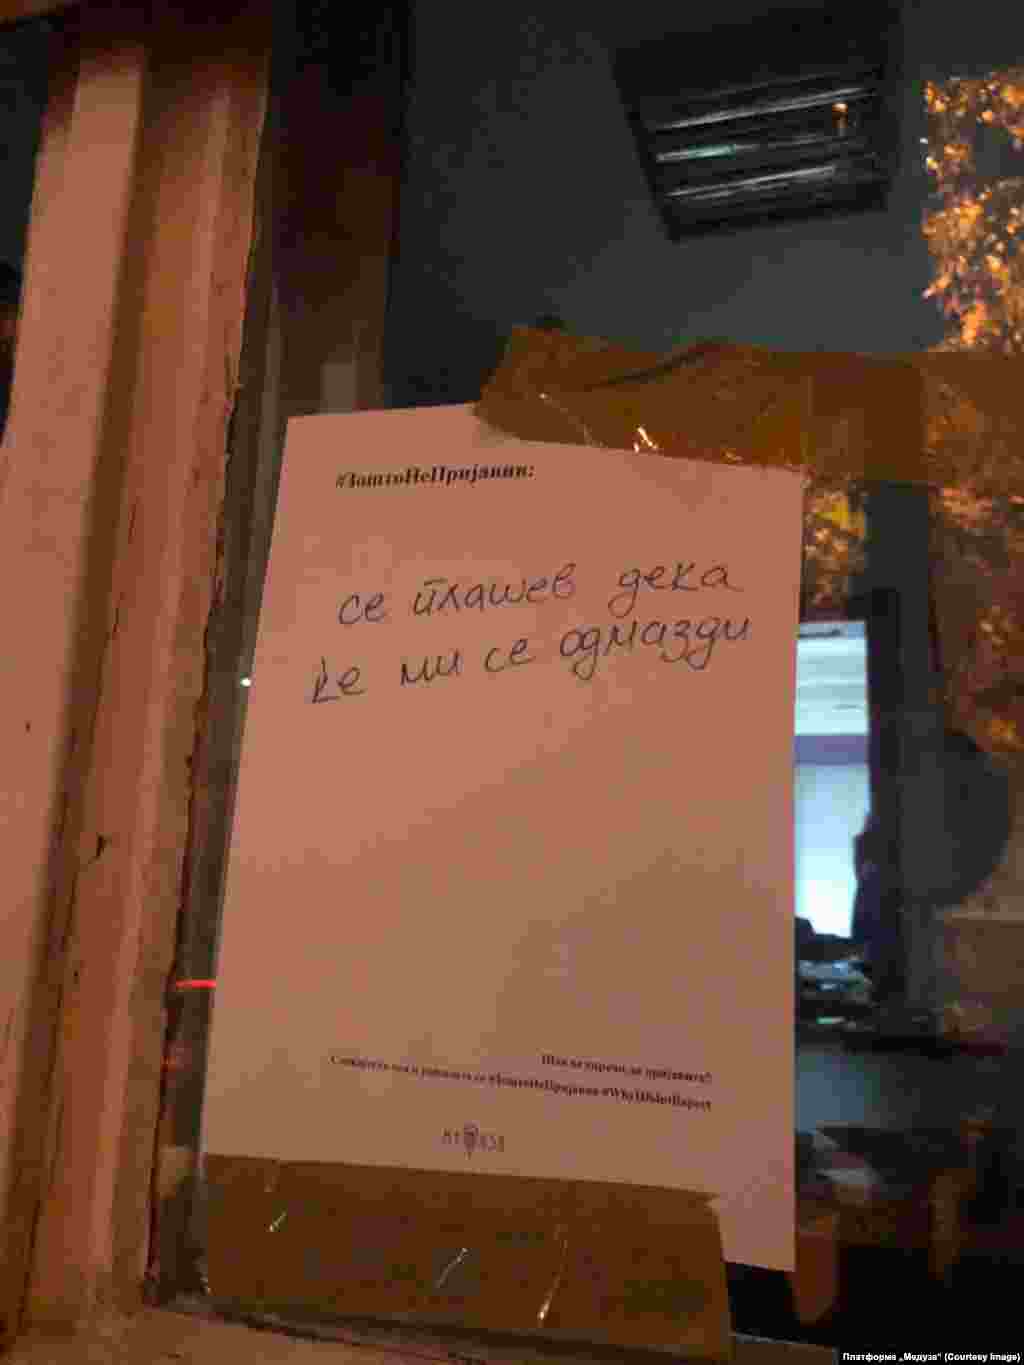 #ЗоштоНеПријавив:
се плашев дека
ќе ми се одмазди
Што ве спречи да пријавите?
#ЗоштоНеПријавив #WhyIDidntReport
Платформа „Медуза“ (Courtesy Image)